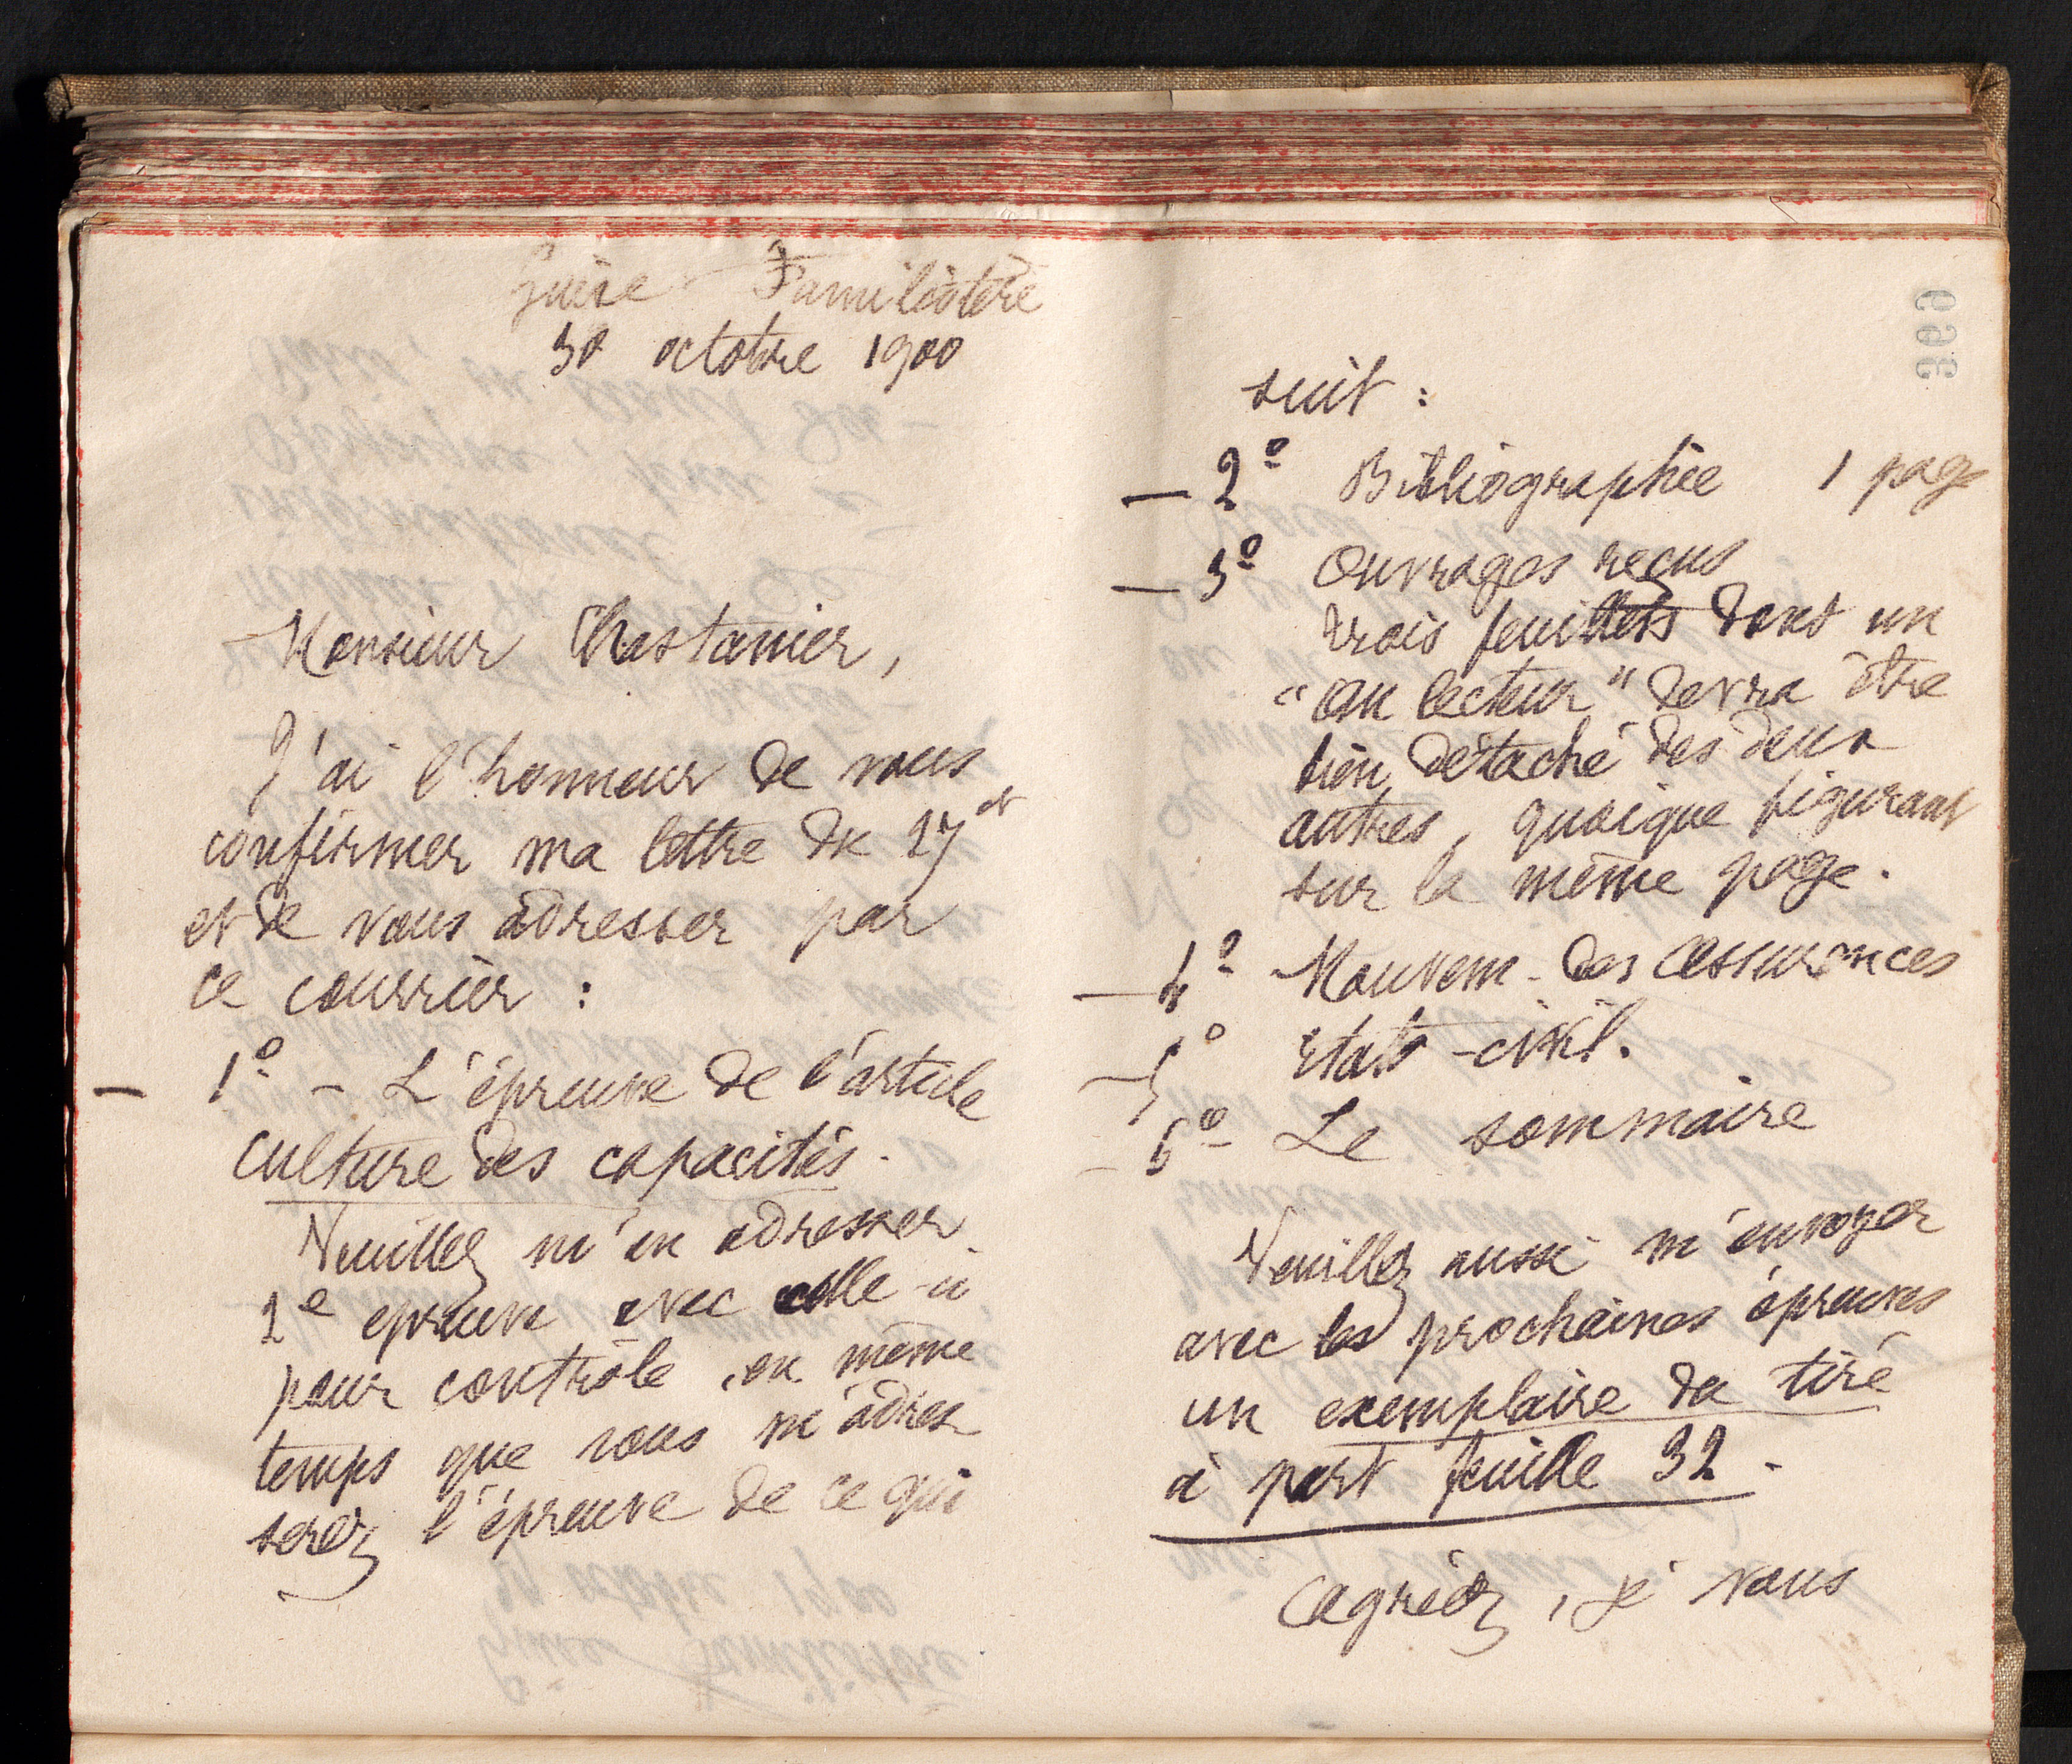 Guise Familistère
30 octobre 1900
Monsieur Chastanier,
J'ai l'honneur de vous
confirmer ma lettre du 27 ct
et de vous adresser par
ce courrier :
— 1º - L'épreuve de l'article
culture des capacités.
Veuillez m'en adresser
2e epreuve avec celle-ci
pour contrôle, en même
temps que vous m'adres
serez l'épreuve de ce qui
399
suit :
— 2º Bibliographie 1 page
— 3º Ouvrages reçus
trois feuillets dont un
"au lecteur" devra être
bien détaché des deux
autres, quoique figurant
sur la même page.
— 4º Mouvem- des assurances
— 5º Etats-civil.
— 6º Le sommaire
Veuillez aussi m'envoyer
avec les prochaines épreuves
un exemplaire du tiré
à part feuille 32.
Agréez, je vous